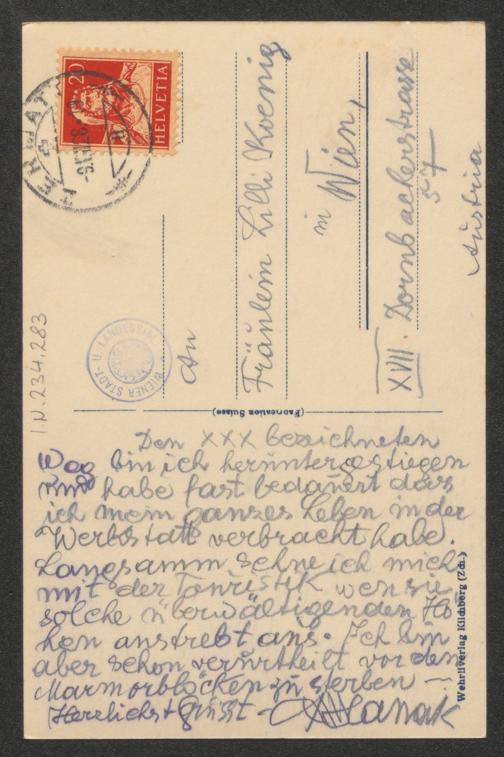 Den XXX bezeichneten
Weg bin ich heruntergestiegen
und habe fast bedauert dass
ich mein ganzes Leben in der
Werkstatt verbracht habe.
Langsamm sehne ich mich
mit der Touristik wen sie
solche überwältigenden Hö
hen anstrebt aus. Ich bin
aber schon verurtheilt vor den
Marmorblöcken zu sterben —
Herzlichst grüsst - A Hanak
An
Fräulein Lilli Koenig
in Wien,
XVII. Dornbackerstrasse
57
Austria
20
HELVETIA
ERMATT
WIENER STADT- U. LANDESBIBL
I.N.234.283
(Fabrication Suisse)
Wehrliverlag Kilchberg (Zch.)